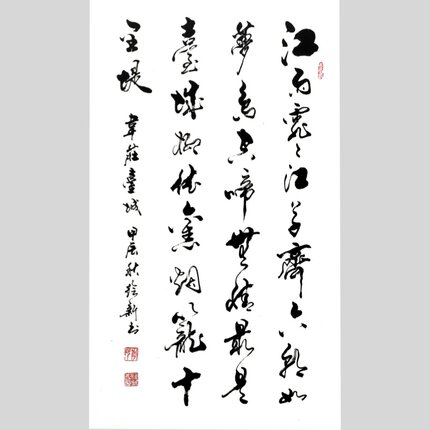 江雨霏霏江草齊六朝如
夢鳥空啼無情最是
臺城柳依舊烟籠十
里堤
韋莊臺城 甲辰秋徐新书